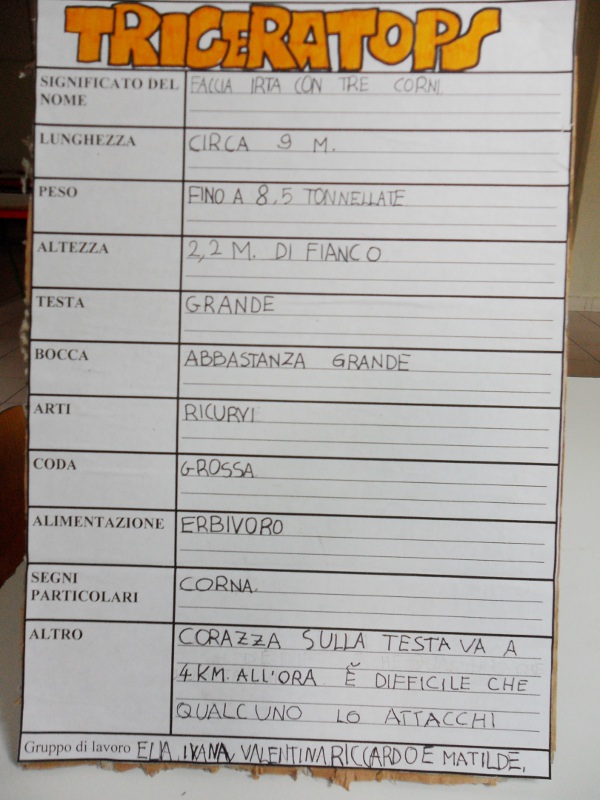 TRICERATOPS
SIGNIFICATO DEL NOME FACCIA IRTA CON TRE CORNI
LUNGHEZZA CIRCA 9 M.
PESO FINO A 8.5 TONNELLATE
ALTEZZA 2,2 M. DI FIANCO
TESTA GRANDE
BOCCA ABBASTANZA GRANDE
ARTI RICURVI
CODA GROSSA
ALIMENTAZIONE ERBIVORO
SEGNI PARTICOLARI CORNA.
ALTRO CORAZZA SULLA TESTA VA A
4 KM. ALL'ORA È DIFFICILE CHE
QUALCUNO LO ATTACCHI
Gruppo di lavoro ELIA, IVANA, VALENTINA RICCARDO E MATILDE.